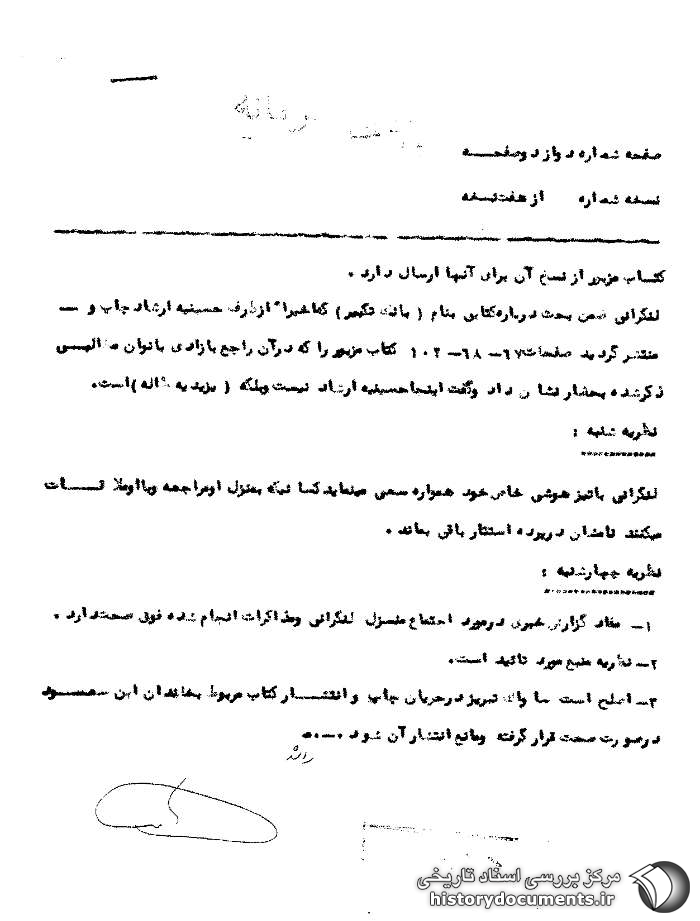 صفحه شماره دو از دو صفحه
نسخه شماره از هفت نسخه
کتاب مزبور از نسخ آن برای آنها ارسال دارد .
لنکرانی ضمن بحث درباره کتابی بنام ( بانگ تکبیر ) که اخیرا" از طرف حسینیه ارشاد چاپ و ـ
منتشر گردید صفحات ۶۷ـ ۶۸ـ ۱۰۲ کتاب مزبور را که در آن راجع بازادی بانوان مطالبی
ذکر شده بحضار نشان داد وگفت اینجا حسینیه ارشاد نیست وبلکه ( یزیدیه ضاله ) است.
نظریه شنبه :
لنکرانی باتیز هوشی خاص خود همواره سعی مینماید کسانیکه بمنزل او مراجعه ویا او ملاقات
میکنند نامشان در پرده استتار باقی بماند .
نظریه چهارشنبه :
۱ـ مفاد گزارش خبری در مورد اجتماع منزل لنکرانی ومذاکرات انجام شده فوق صحت دارد .
۲ـ نظریه منبع مورد تائید است.
۳ـ اصلح است ساواک تبریز در جریان چاپ و انتشار کتاب مربوط بخاندان ابن سعود
در صورت صحت قرار گرفته ومانع انتشار آن شود .
مرکز بررسی اسناد تاریخی
historydocuments.ir